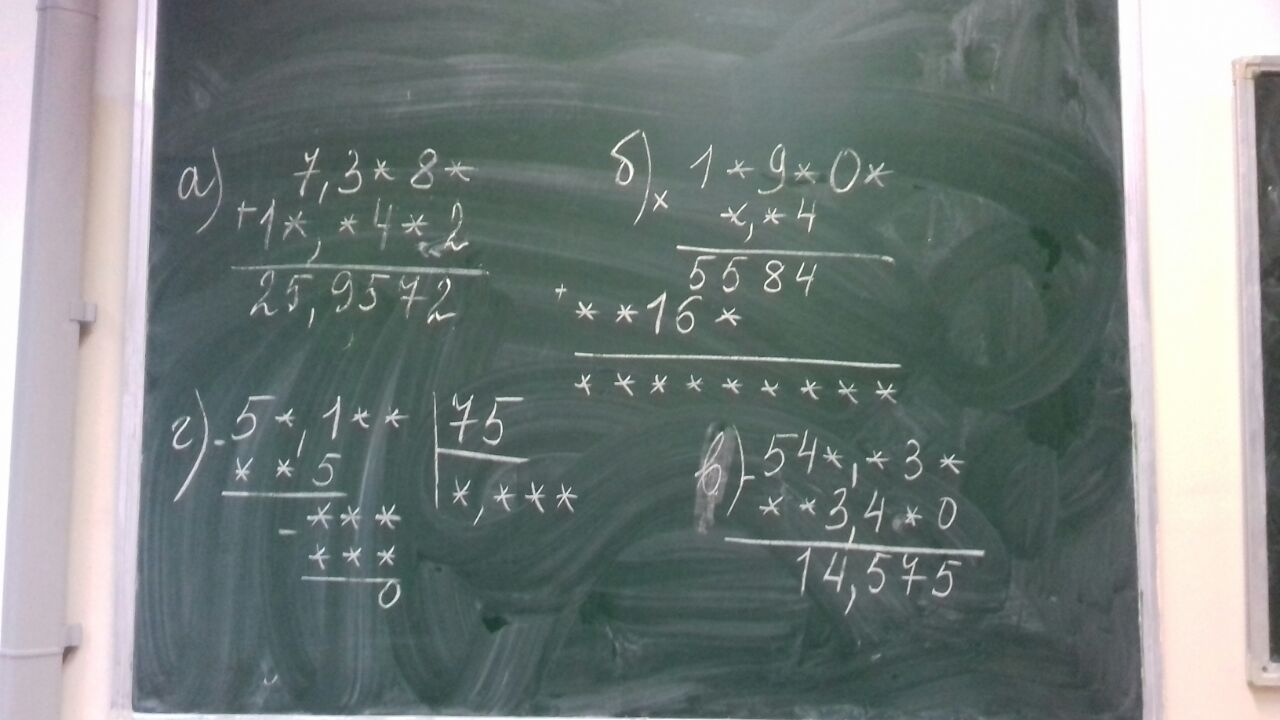 а) 7,3*8*
+1*,*4*2
25,9572
б) 1*9*0*
x *,*4
5584
+ **16*
*********
г) -5*,1** | 75
**5 | *,***
-***
***
0
в) -54*,*3*
**3,4*0
14,575